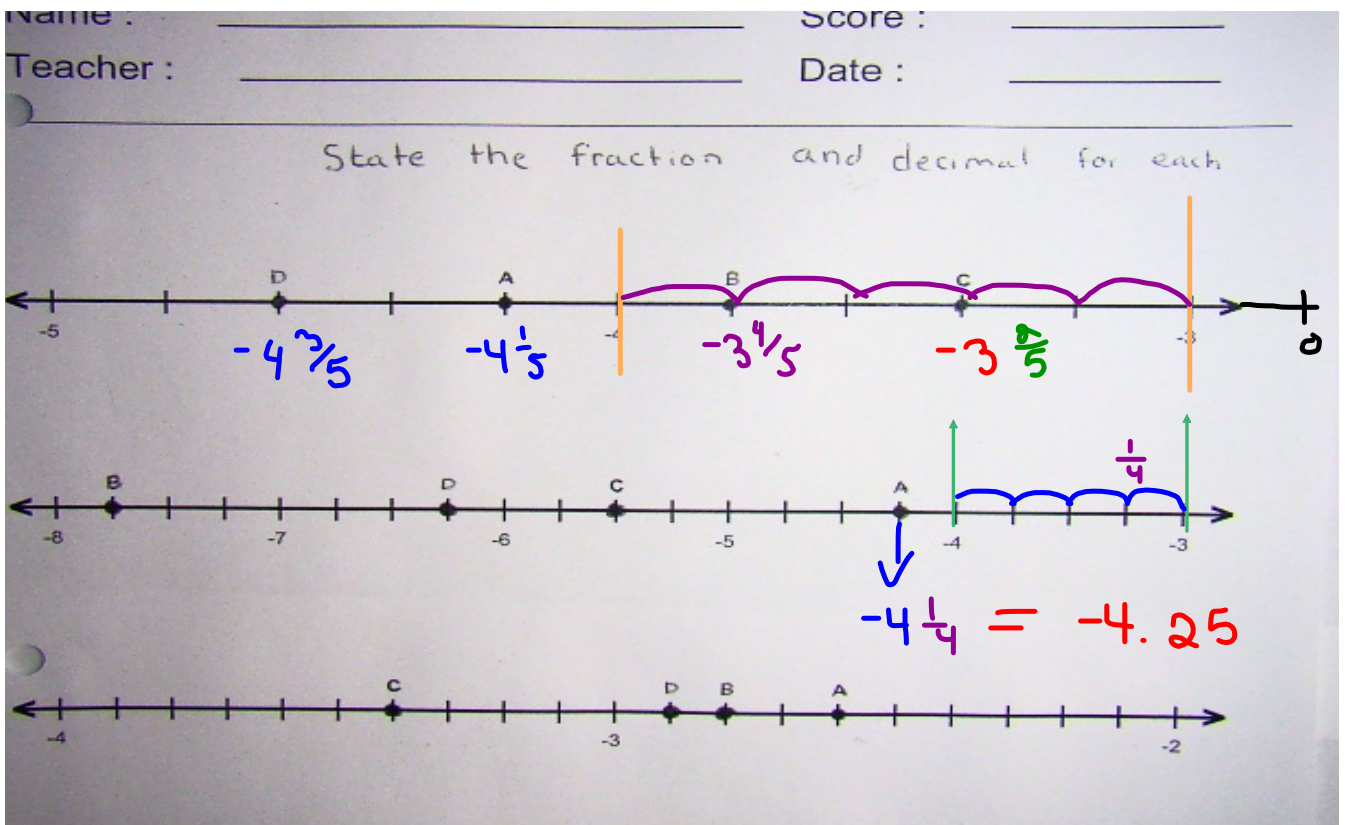 Name : Score :
Teacher : Date :
State the fraction and decimal for each
D A B C
-5 -4 -3 0
-4 3/5 -4 1/5 -3 4/5 -3 2/5
1/4
B D C A
-8 -7 -6 -5 -4 -3
-4 1/4 = -4.25
C D B A
-4 -3 -2